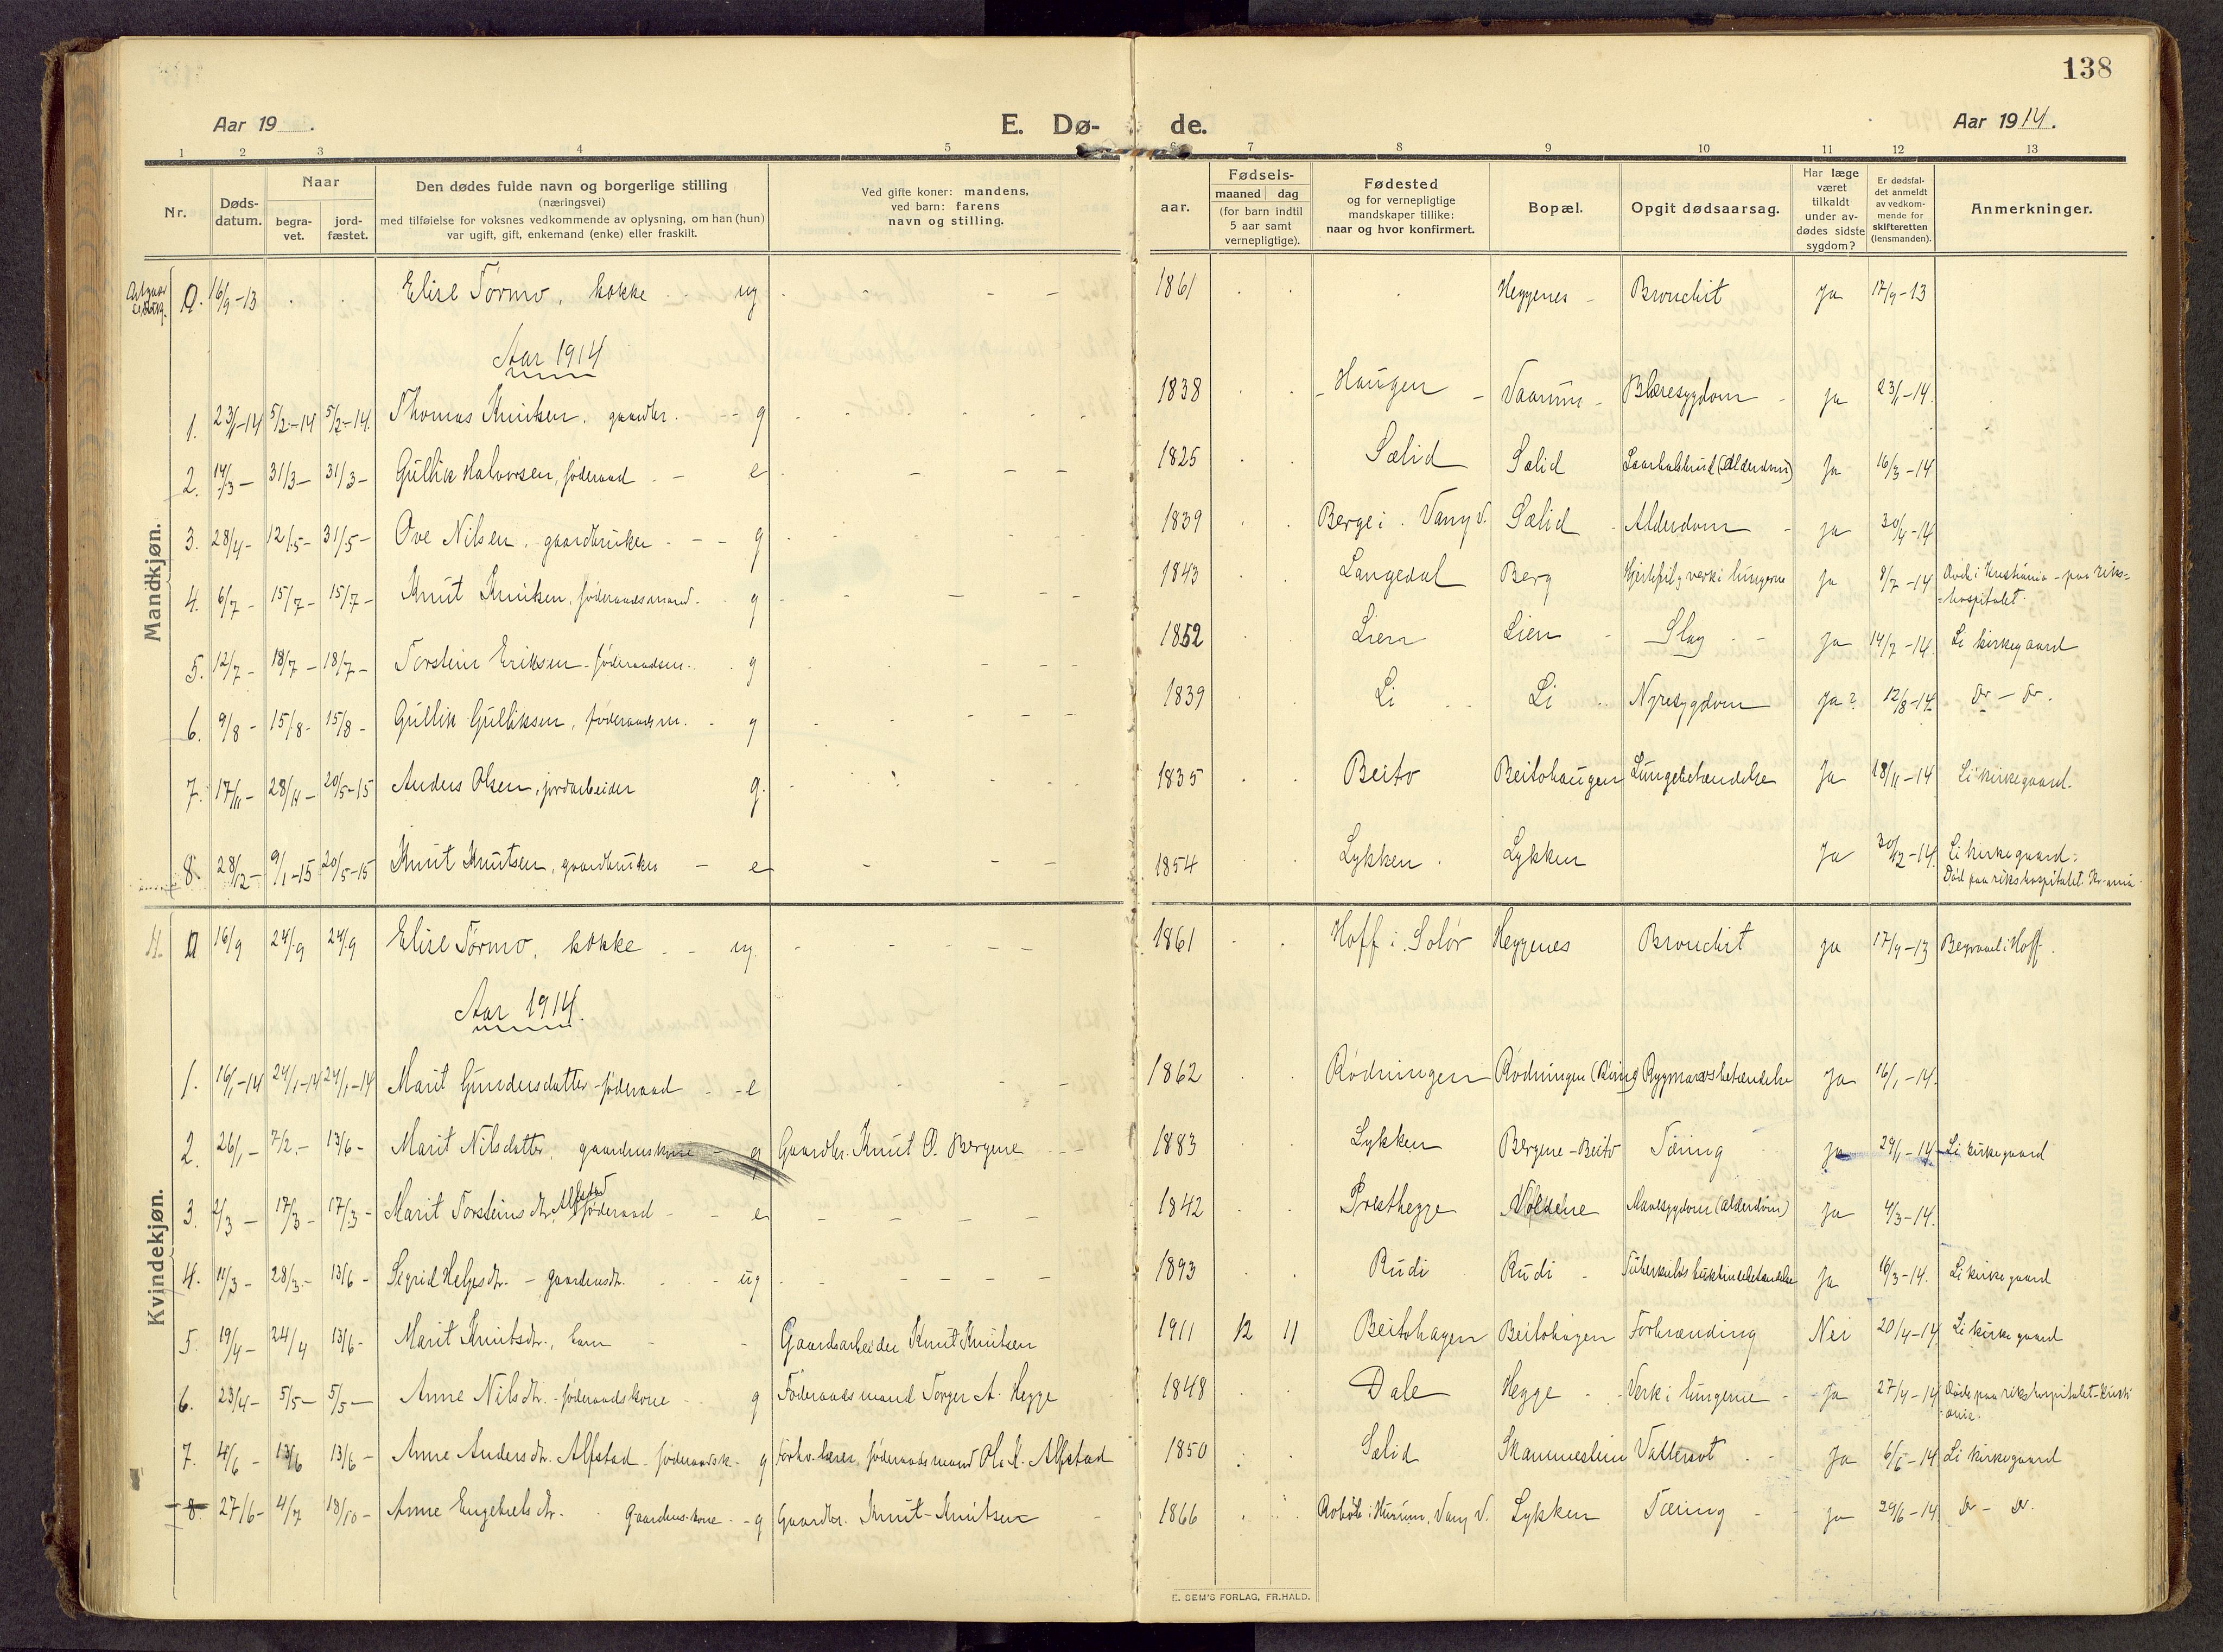 138
Aar 19 .
E. Dø- de.
Aar 1914.
1 2 3 4 5 6 7 8 9 10 11 12 13
Nr.
Døds-
datum.
Naar
begra-
vet.
jord-
fæstet.
Den dødes fulde navn og borgerlige stilling
(næringsvei)
med tilføielse for voksnes vedkommende av oplysning, om han (hun)
var ugift, gift, enkemand (enke) eller fraskilt.
Ved gifte koner: mandens,
ved barn: farens
navn og stilling.
aar.
Fødsels-
maaned dag
(for barn indtil
5 aar samt
vernepligtige).
Fødested
og for vernepligtige
mandskaper tillike:
naar og hvor konfirmert.
Bopæl.
Opgit dødsaarsag.
Har læge
været
tilkaldt
under av-
dødes sidste
sygdom?
Er dødsfal-
det anmeldt
av vedkom-
mende for
skifteretten
(lensmanden).
Anmerkninger.
Mandkjøn.
16/9-13 Elise Tørmo, kokke ug 1861 Heggenes Bronchit Ja 17/9-13
Aar 1914
1. 23/1-14 5/2-14 5/2-14 Thomas Knutsen, gaardbr. g 1838 Haugen Bläresygdom ja 23/1-14
2. 14/3- 31/3- 31/3- Gullik Halvorsen, føderaad e 1825 Sælid Sælid (Alderdom) Ja 16/3-14
3. 28/4- 12/5- 31/5- Ove Nilsen, gaardbruker g 1839 Berge i Vang V. Sælid Alderdom ja 30/4-14
4. 6/7- 15/7- 15/7- Knut Knutsen, føderaadsmand g 1843 Langedal Berg Hjertefeil og verk i lungerne Ja 8/7-14 Døde i Kristiania - paa riks-
=hospitalet.
5. 12/7- 18/7- 18/7- Torstein Eriksen - føderaadsm. g 1852 Lien Lien Slag ja 14/7-14 Li kirkegaard
6. 9/8- 15/8- 15/8- Gullik Gulliksen, føderaadsm. g 1839 Li Li Nyresygdom Ja? 12/8-14 do - do.
7. 17/11- 28/11- 20/5-15 Anders Olsen, jordarbeider g. 1835 Beito Beitohaugen Lungebetændelse Ja 18/11-14 Li kirkegaard.
8. 28/12- 9/1-15 20/5-15 Knut Knutsen, gaardbruker e 1854 Lykken Lykken Ja 30/12-14 Li kirkegaard.
Død paa rikshospitalet. Kr-ania
Kvindekjøn.
16/9 24/9 24/9 Elise Tørmo, kokke ug. 1861 Hoff i Solør Heggenes Bronchit ja 17/9-13 Begravet i Hoff.
Aar 1914.
1. 16/1-14 24/1-14 24/1-14 Marit Gundersdatter - føderaad e 1862 Rødningen Rødningen Rygmarvsbetændelse Ja 16/1-14
2. 26/1- 7/2- 13/6- Marit Nilsdatter, gaardmuskone g Gaardbr. Knut O. Bergene 1883 Lykken Bergene-Beito Tæring ja 29/1-14 Li kirkegaard
3. 2/3- 17/3- 17/3- Marit Torsteinsdtr. Alfstad føderaad e 1842 Presthegge Voldene Mavesygdom (alderdom) Ja 4/3-14.
4. 11/3- 28/3- 13/6- Sigrid Helgesdtr. - gaardmsdtr. ug 1893 Rudi Rudi Ja 16/3-14. Li kirkegaard
5. 19/4- 24/4 13/6- Marit Knutsdtr., barn Gaardsarbeider Knut Knutsen 1911 12 11 Beitohagen Beitohagen Forbrænding Nei 20/4-14 Li kirkegaard
6. 23/4- 5/5- 5/5- Anne Nilsdtr. - føderaadskone g Føderaadsmand Torger A. Hegge 1848 Dale Hegge Verk i lungerne Ja 27/4-14 Døde paa rikshospitalet-Kristi
-ania.
7. 4/6- 13/6 13/6- Anne Andersdtr. Alfstad - føderaadsk. g Forhv. lærer, føderaadsmand Ola K. Alfstad 1850 Sælid Skammestein Vattersot Ja 6/6-14 Li kirkegaard
8. 27/6- 4/7 18/10- Anne Engebretsdtr. Gaardmuskone g Gaardbr. Knut Knutsen 1866 Vang V. Lykken Tæring ja 29/6-14 do - do.
E. SEM'S FORLAG, FR.HALD.